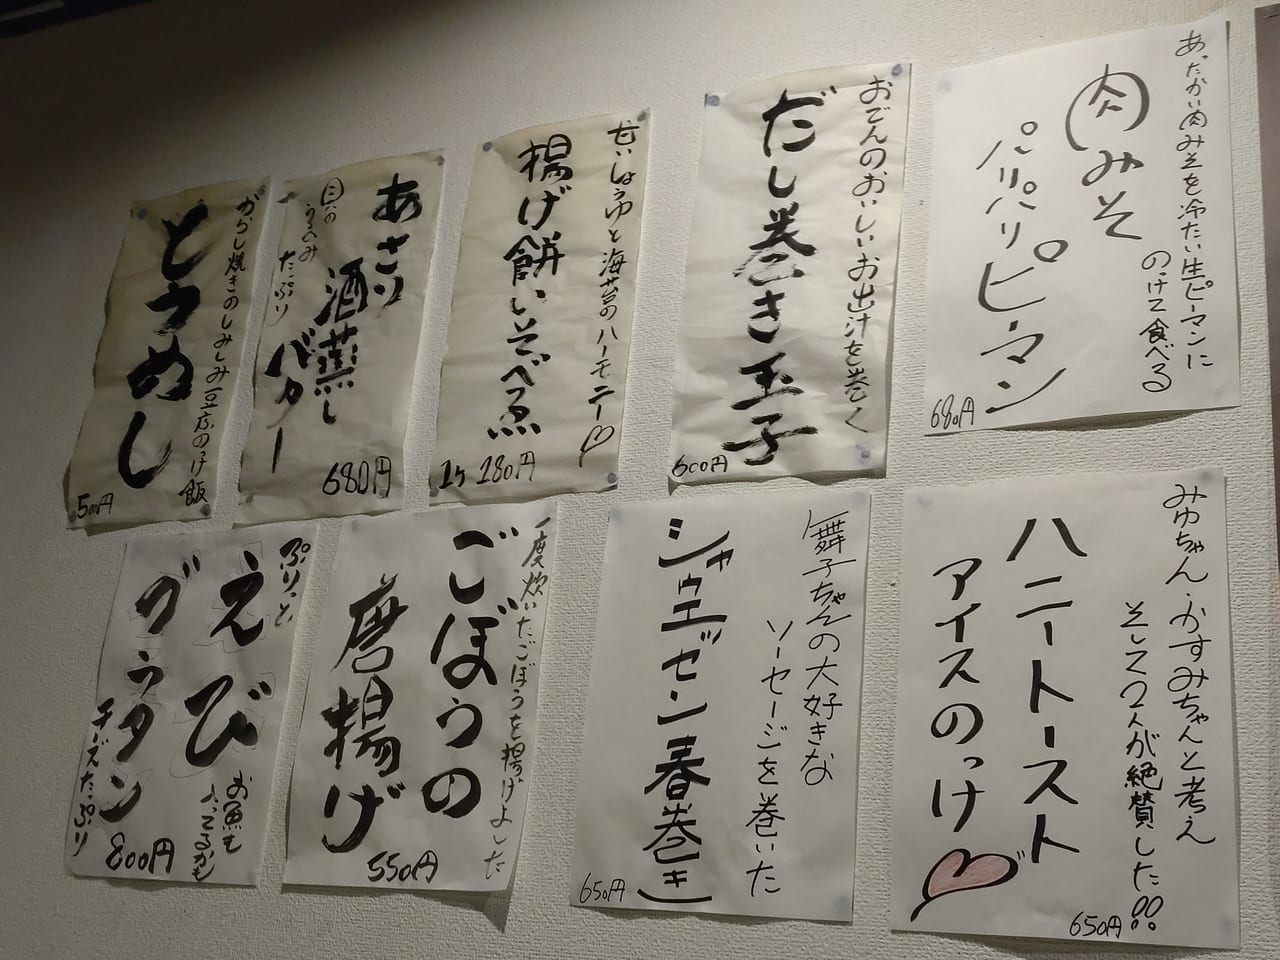 あったかい肉みそを冷たい生ピーマンに
のっけて食べる
肉みそ
パリパリピーマン
680円
おでんのおいしいお出汁を巻く
だし巻き玉子
600円
甘いしょうゆと海苔のハーモニー
揚げ餅いそべゑ
1ヶ 180円
あさり
酒蒸し
バター
貝のうまみ
たっぷり
680円
からし焼きのしみしみ豆腐のっけ飯
とうめし
500円
みゆちゃん・かすみちゃんと考え
そして2人が絶賛した!!
ハニートースト
アイスのっけ
650円
舞子ちゃんの大好きな
ソーセージを巻いた
シャウエッセン春巻き
650円
一度炊いたごぼうを揚げよした
ごぼうの
唐揚げ
550円
ぷりっと
えび
グゥタン
お魚も
入ってるかも
チーズたっぷり
800円